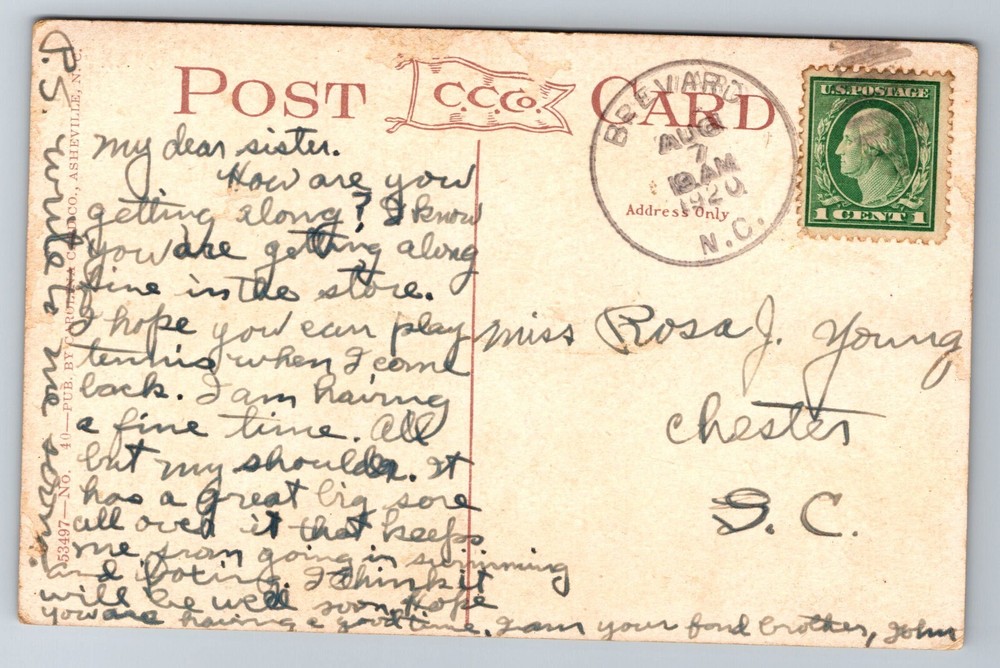 POST C.C.Co. CARD
BREVARD
AUG
7
AM
1920
N.C.
U.S. POSTAGE
1 CENT 1
Address Only
My dear sister.
How are you
getting along? I know
you are getting along
fine in the store.
I hope you can play
tennis when I come
back. I am having
a fine time. All
but my shoulder. It
has a great big sore
all over it that keeps
me from going in swimming
and boxing. I think it
will be well soon. Hope
you are having a good time. I am your fond brother, John
P.S. write me some.
Miss Rosa J. Young
Chester
S. C.
53497—No. 40—PUB. BY CAROLINA CARD CO., ASHEVILLE, N. C.